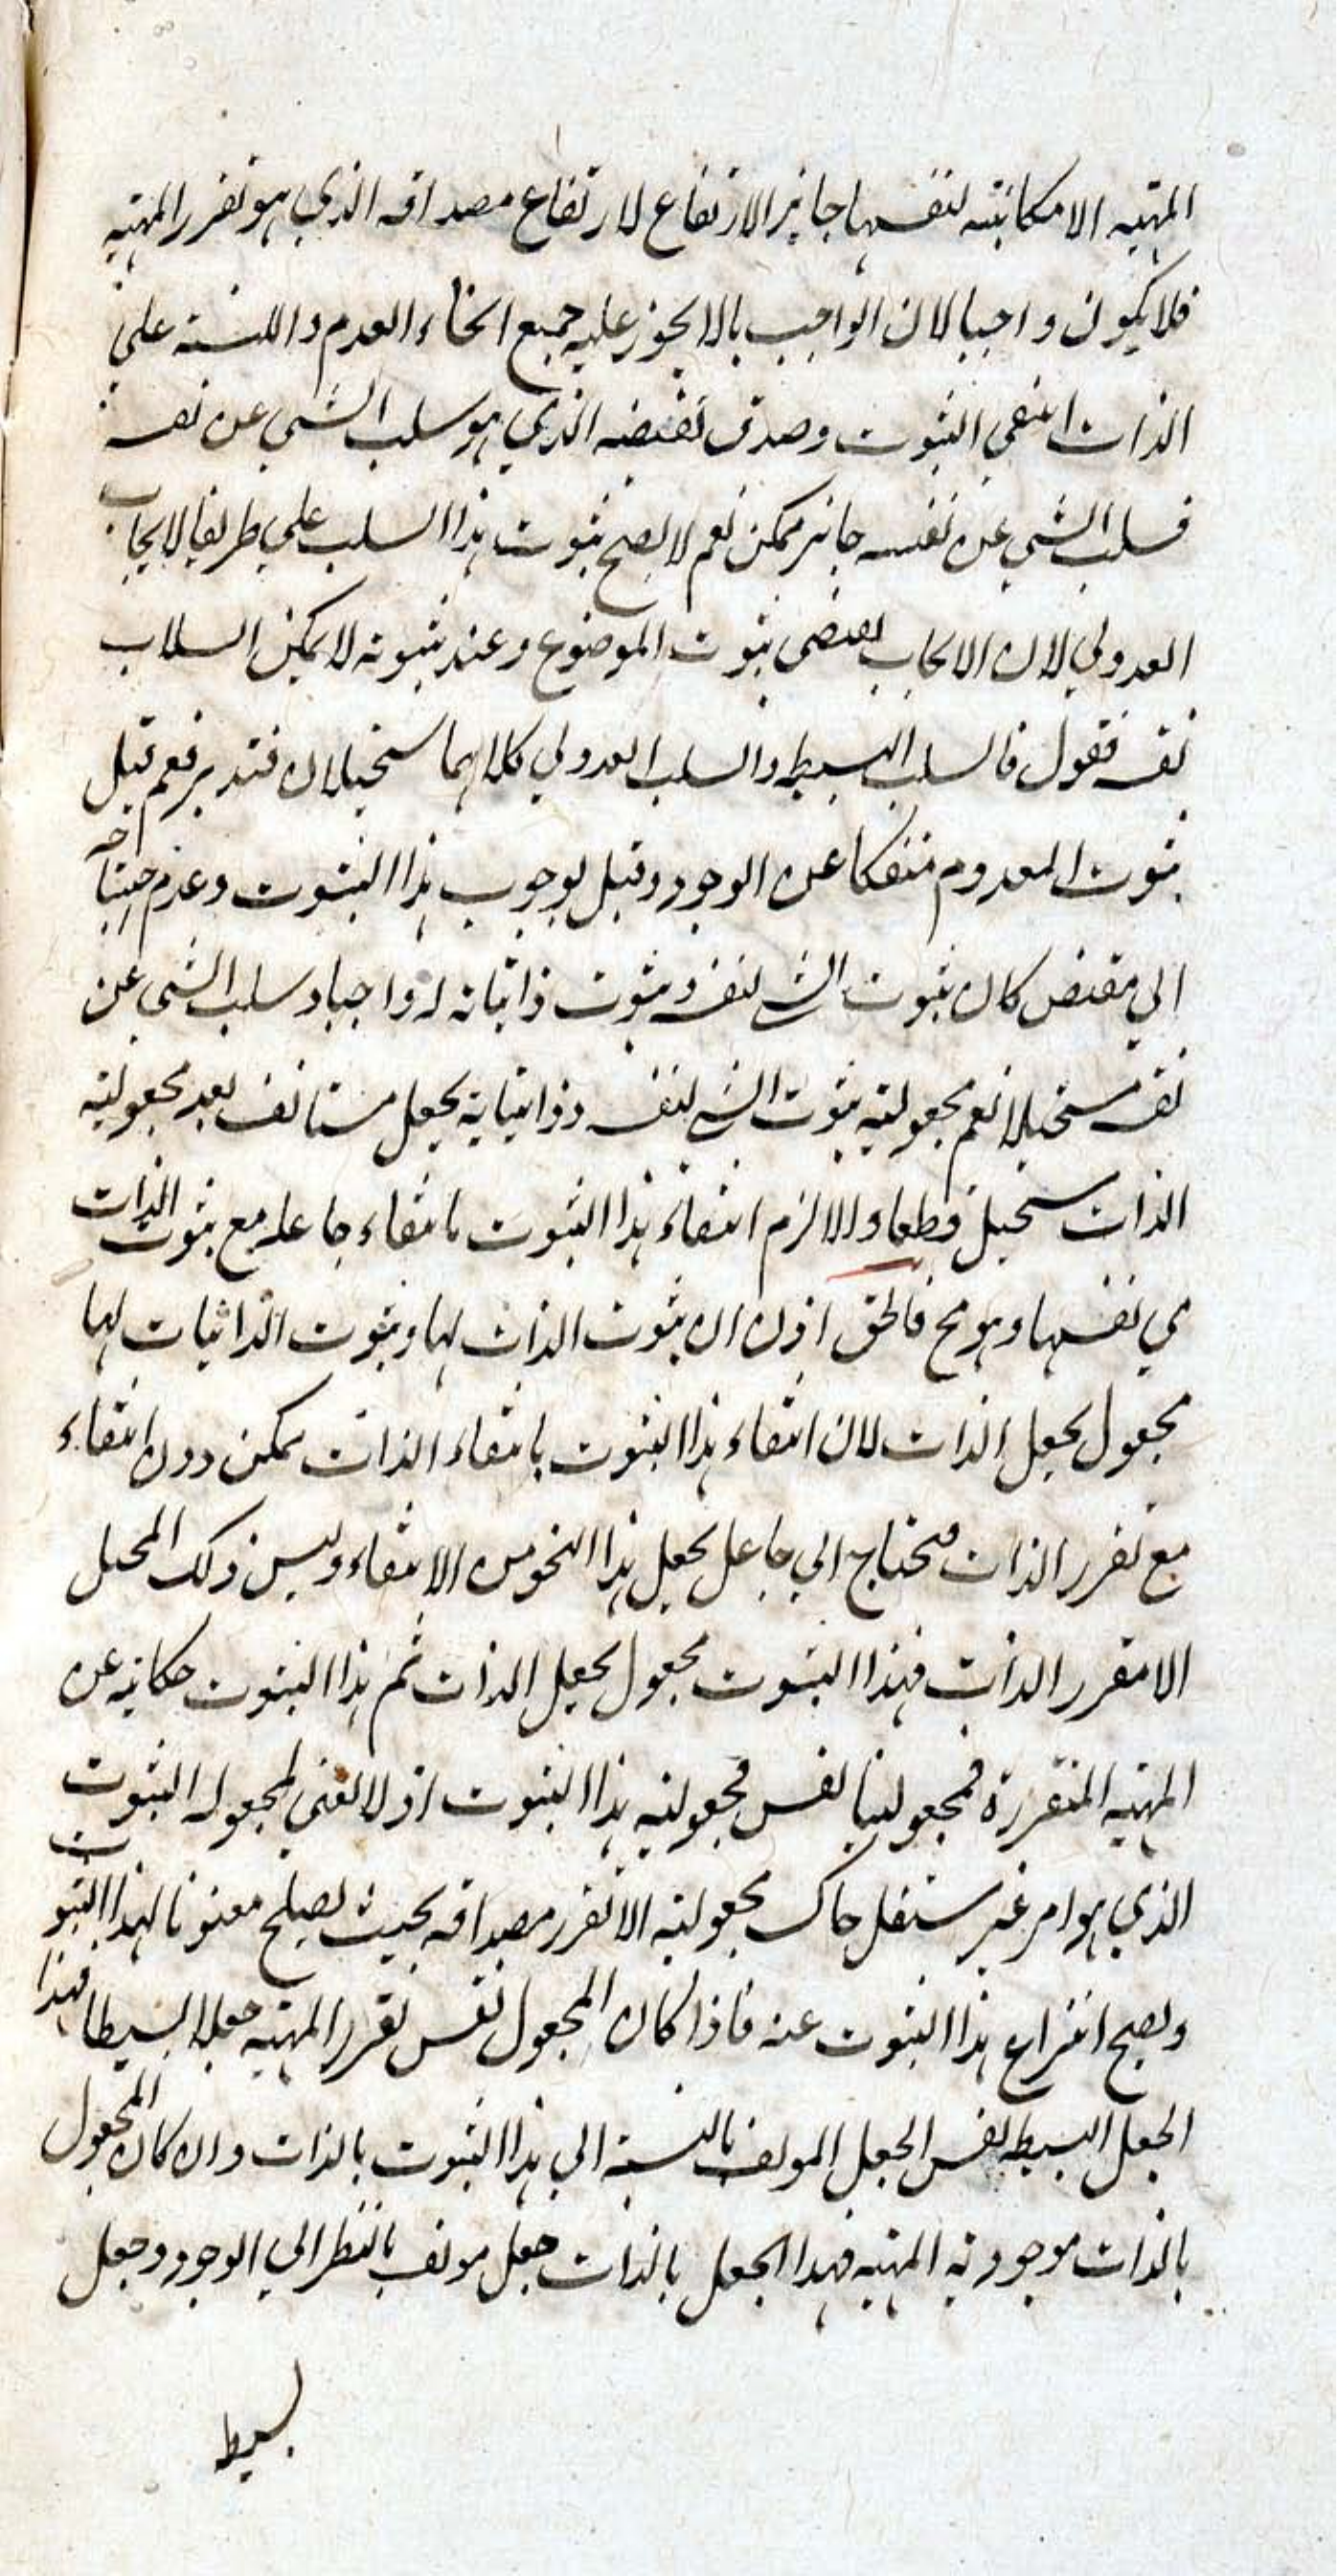 المهية الامكانية لنفسها جايز الارتفاع لارتفاع مصداقه الذي هو تقرر المهية
فلا يكون واجبا لان الواجب بالا يجوز عليه جميع انحاء العدم و اللسته علي
الذات انتفي الثبوت وصدق نقيضه الذي هو سلب الشي عن نفسه
فسلب الشي عن نفسه جايز ممكن نعم لا يصح ثبوت هذا السلب علي طريق الايجاب
العدولي لان الايجاب يقتضي ثبوت الموضوع وعند ثبوته لا يمكن انسلاب
نفسه فقول فالسلب البسيط والسلب العدولي كلاهما مستحيلان فتدبر نعم قيل
ثبوت المعدوم منفكا عن الوجود وقيل بوجوب هذا الثبوت وعدم احتياجه
الي مقتض كان ثبوت الشي لنفسه وثبوت ذاتياته له واجبا وسلب الشي عن
نفسه مستحيلا نعم مجعولية ثبوت الشي لنفسه وذاتياته بجعل مستانف بعد مجعولية
الذات مستحيل قطعا والا لزم انتفاء هذا الثبوت بانتفاء جاعله مع ثبوت الذات
في نفسها وهو مح فالحق اذن ان ثبوت الذات لها وثبوت الذاتيات لها
مجعول بجعل الذات لان انتفاء هذا الثبوت بانتفاء الذات ممكن دون انتفاء
مع تقرر الذات فيحتاج الي جاعل يجعل هذا النحو من الانتفاء وليس ذلك المحيل
الا مقرر الذات فهذا الثبوت مجعول بجعل الذات ثم هذا الثبوت حكاية عن
المهية المتقررة فمجعوليتها نفس مجعولية هذا الثبوت اذ لا نعني بمجعولية الثبوت
الذي هو امر غير مستقل حاك مجعوليته الا تقرر مصداقه بحيث يصلح معنونا لهذا الثبوت
ويصح انتزاع هذا الثبوت عنه فاذا كان المجعول نفس تقرر المهية جعلا بسيطا فهذا
الجعل البسيط نفس الجعل المولف بالنسبة الي هذا الثبوت بالذات وان كان المجعول
بالذات موجودية المهية فهذا الجعل بالذات جعل مولف بالنظر الي الوجود وجعل
بسيط